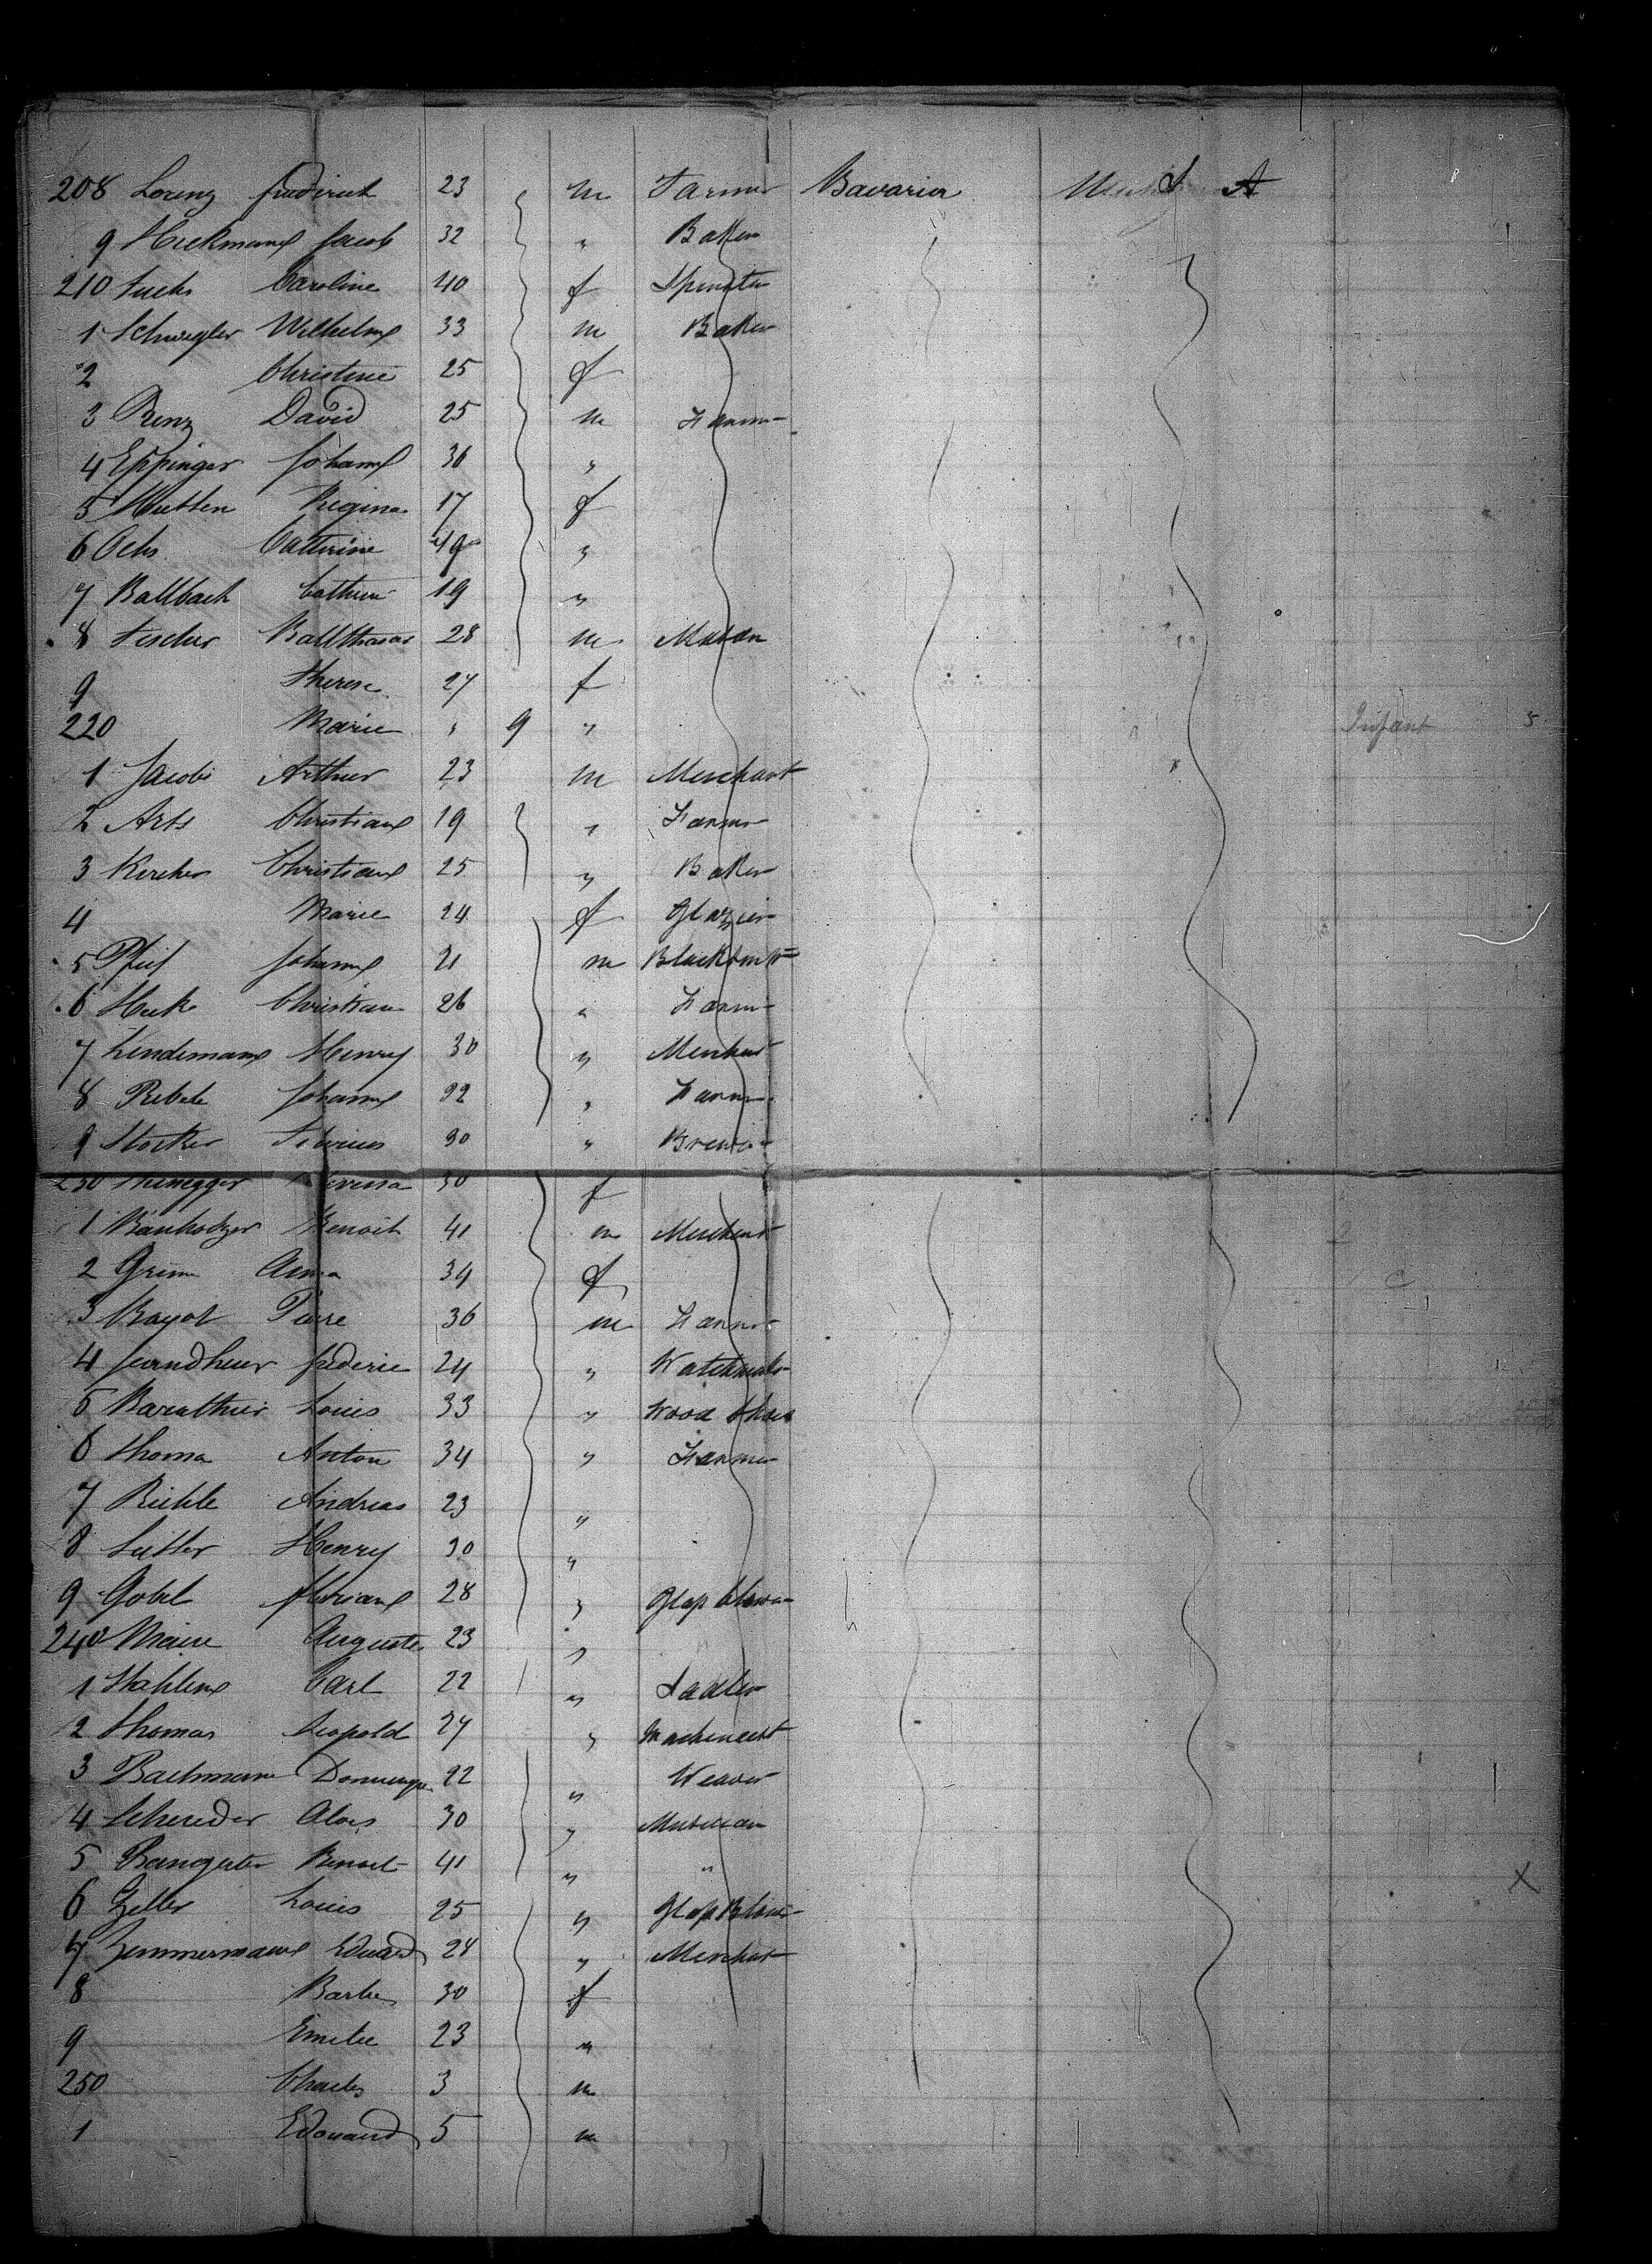 208 Lorenz frederick 23 m Farmer Bavaria U S A
9 Heckmann Jacob 32 " Baker
210 Fuchs Caroline 40 f Spinster
1 Schwegler Wilhelm 33 m Baker
2 Christine 25 f
3 Renz David 25 m Farmer
4 Eppinger Johann 36 "
5 Regina 17 f
6 Ochs Catherine 19 "
7 Ballbach Cathrine 19 "
8 Fischer Ballthasar 28 m Mason
9 Therese 27 f
220 Marie " 9 " Infant 5
1 Jacobi Arthur 23 m Merchant
2 Arts Christian 19 " Farmer
3 Kircher Christian 25 " Baker
4 Marie 24 f Glazier
5 Pfeif Johann 21 m Blacksmith
6 Christian 26 " Farmer
7 Lindemann Henry 30 " Merchant
8 Rebele Johann 32 " Farmer
9 Stocker 30 " Brewer
230 30 f
1 Banholzer Benoit 41 m Merchant
2 Grim Anna 34 f
3 Bayot Pierre 36 m Farmer
4 Jeandheur frederic 24 " Watchmaker
5 Barathier Louis 33 " Wood Shoes
6 Thoma Anton 34 " Farmer
7 Riehle Andreas 23 "
8 Sutter Henry 30 "
9 Gobel 28 " Glass blower
240 Maire Auguste 23 "
1 Stahlin Carl 22 " Sadler
2 Thomas Leopold 27 " Machineist
3 Bachmann Dominique 22 " Weaver
4 Schereder Alois 30 " Musician
5 Bangerter Benoit 41 " "
6 Zeller Louis 25 " Glass Blower
7 Zimmermann Eduard 24 " Merchant
8 Barbe 30 f
9 Emilie 23 "
250 Charles 3 m
1 Edouard 5 m